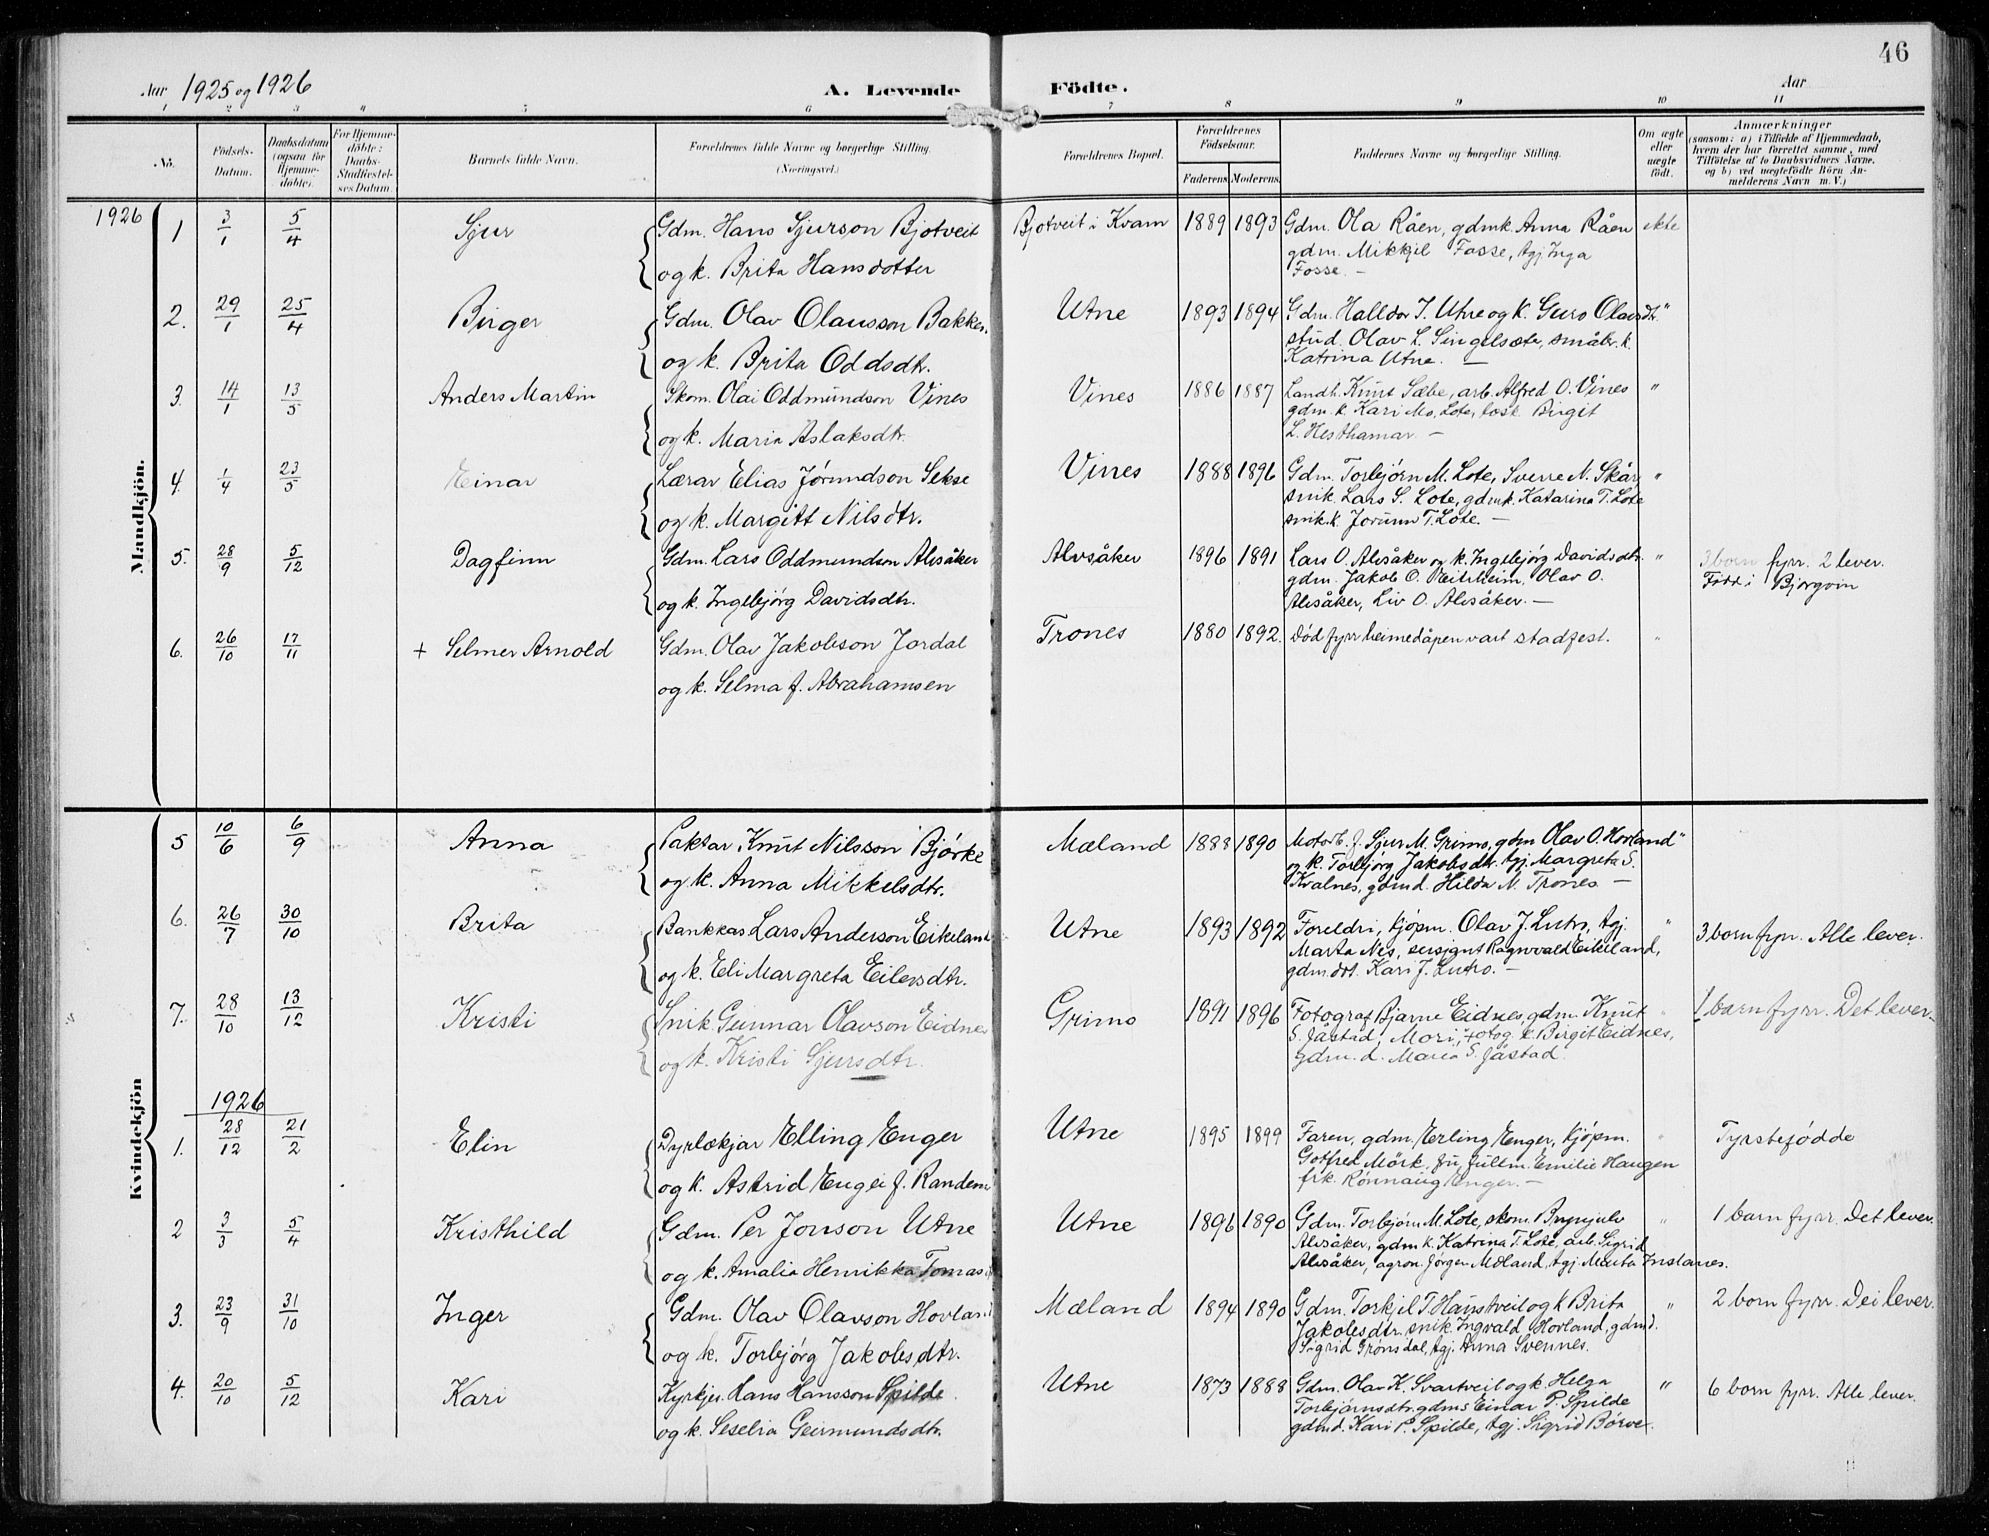 46
Aar 1925 og 1926 A. Levende Födte. Aar
1 2 3 4 5 6 7 8 9 10 11
No. Födsels-Datum. Daabsdatum (ogsaa for Hjemmedöbte). For Hjemmedöbte: Daabs-Stadfæstelses Datum. Barnets fulde Navn. Forældrenes fulde Navne og borgerlige Stilling. (Næringsvei.) Forældrenes Bopæl. Forældrenes Födselsaar. Faderens Moderens. Faddernes Navne og borgerlige Stilling. Om ægte eller uægte födt. Anmærkninger (saasom: a) i Tilfælde af Hjemmedaab, hvem der har forrettet samme, med Tilföielse af to Daabsvidners Navne, og b) ved uægtefödte Börn Anmelderens Navn m. V.)
Mandkjön.
1926 1 3/1 5/4 Sjur Gdm. Hans Sjurson Bjotveit Bjotveit i Kvam 1889 1893 Gdm. Ola Råen, gdmk. Anna Råen ekte
og k. Brita Hansdotter gdm. Mikkjel Fosse, tgj. Inga
Fosse. —
2. 29/1 25/4 Birger Gdm. Olav Olausson Bakke, Utne 1893 1894 Gdm. Halldor J. Utne og k. Guro Olavsdt. "
og k. Brita Oddsdtr. stud. Olav L. Singelsæte, småbr. k.
Katrina Utne. —
3. 14/1 13/5 Anders Martin Skom. Olai Oddmundson Vines Vines 1886 1887 Landh. Knut Sæbe, arb. Alfred O. Vines "
og k. Maria Aslaksdtr. gdm. k. Kari Mo, Lote, Birgit
L. Hesthamar. —
4. 1/4 23/5 Einar Lærar Elias Jørundson Sekse Vines 1888 1896 Gdm. Torbjørn M. Lote, Sverre N. Skår "
og k. Margitt Nilsdtr. snik. Lars S. Lote, gdmk. Katarina T. Lote
snik. k. Jorunn T. Lote. —
5. 28/9 5/12 Dagfinn Gdm. Lars Oddmundson Alvsåker Alvsåker 1896 1891 Lars O. Alvsåker og k. Ingebjørg Davidsdtr. " 3 born fyrr. 2 lever.
og k. Ingebjørg Davidsdtr. gdm. Jakob O. Reitsheim, Olav O. Fødd i Bjørgvin
Alvsåker, Liv O. Alvsåker. —
6. 26/10 17/11 + Selmer Arnold Gdm. Olav Jakobson Jordal Trones 1880 1892. Død fyrr heimedåpen vart stadfest. "
og k. Selma f. Abrahamsen
Kvindekjön
5 10/6 6/9 Anna Paktar Knut Nilsson Bjørke Mæland 1888 1890 Motorb. f. Sjur M. Grimo, gdm Olav O. Hovland "
og k. Anna Mikkelsdtr. og k. Torbjørg Jakobsdtr. tgj. Margreta S.
Kvalnes, gdmd. Hilda N. Trones —
6. 26/7 30/10 Brita Bankkas Lars Anderson Eikeland Utne 1893 1892 Foreldri, kjøpm. Olav J. Lutro, tgj. " 3 born fyrr. Alle lever.
og k. Eli Margreta Eilersdtr. Marta Nes, sersjant Ragnvald Eikeland,
gdm. dot. Kari J. Lutro. —
7. 28/10 13/12 Kristi Snik. Gunnar Olavson Eidnes Grimo 1891 1896 Fotograf Bjarne Eidnes, gdm. Knut " 1 barn fyrr. Det lever.
og k. Kristi Sjursdtr. S. Jåstad, Mori, fotog. k. Birgit Eidnes,
gdm. d. Maria S. Jåstad.
1926
1. 28/12 21/2 Elin Dyrlækjar Elling Enger Utne 1895 1899 Faren, gdm. Erling Enger, kjøpm. " Fyrstefødde
og k. Astrid Enger f. Randem Gotfred Mörk, fullm. Emilie Haugen
frk. Rønnaug Enger. —
2 3/3 5/4 Kristhild Gdm. Per Jonson Utne Utne 1896 1890 Gdm. Torbjørn M. Lote, skom. Brynjulv " 1 barn fyrr. Det lever.
og k. Amalia Henrikka Tomasd Alvsåker, gdm k. Katrina T. Lote, arb. Sigrid
Alvsåker, agron. Jørgen Mæland, tgj. Marta Instanes.
3. 23/9 31/10 Inger Gdm. Olav Olavson Hovland Mæland 1894 1890 Gdm. Torkjel T. Haustveit og k Brita " 2 born fyrr. Dei lever.
og k. Torbjørg Jakobsdtr. Jakobsdtr. snik. Ingvald Hovland, gdmd.
Sigrid Grønsdal, tgj. Anna Svennes.
4. 20/10 5/12 Kari Kyrkjev. Hans Hansson Spilde Utne 1873 1888 Gdm. Olav K. Svartveit og k. Helga " 6 born fyrr. Alle lever.
og k. Seselia Geirmundsdtr. Torbjørnsdtr. gdms Einar P. Spilde
gdmd. Kari P. Spilde, tgj. Sigrid Børve.